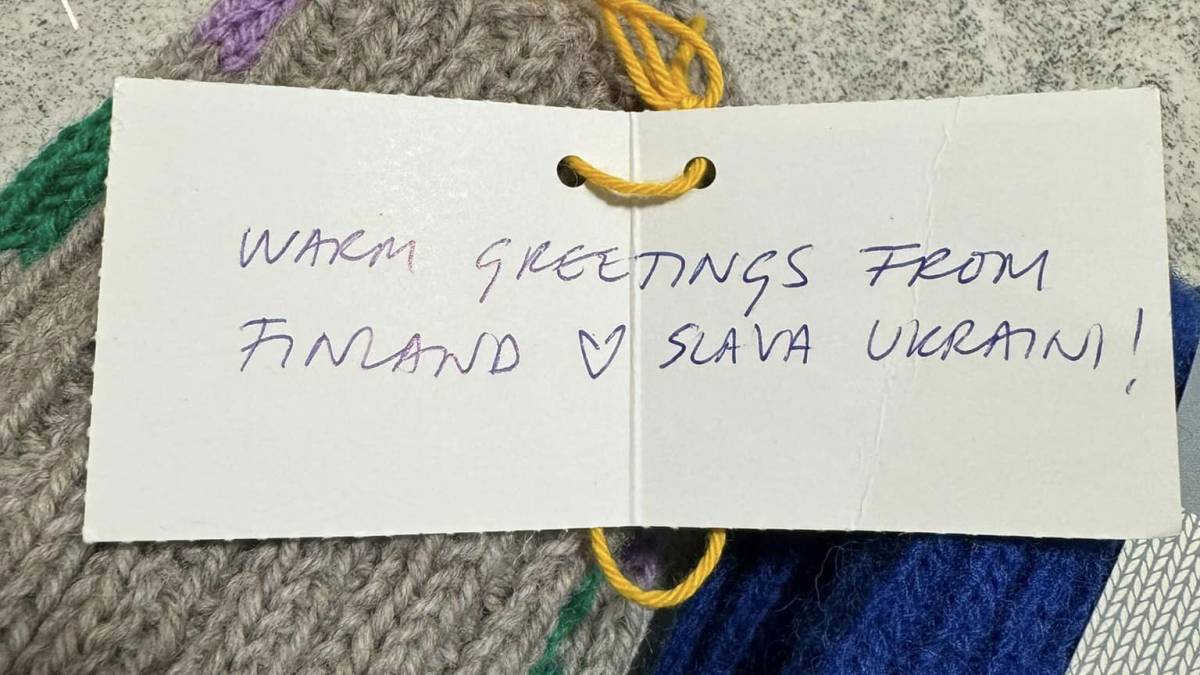 WARM GREETINGS FROM
FINLAND ♡ SLAVA UKRAINI!